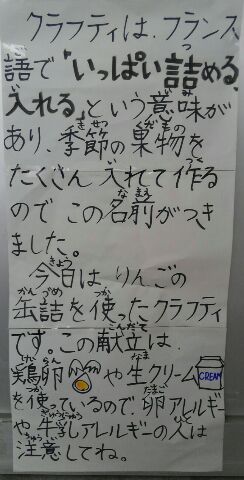 クラフティは、フランス
語で"いっぱい詰める、
入れる"という意味が
あり、季節の果物を
たくさん入れて作る
のでこの名前がつき
ました。
今日はりんごの
缶詰を使ったクラフティ
です。この献立は、
鶏卵や生クリーム CREAM
を使っているので、卵アレルギー
や牛乳アレルギーの人は
注意してね。